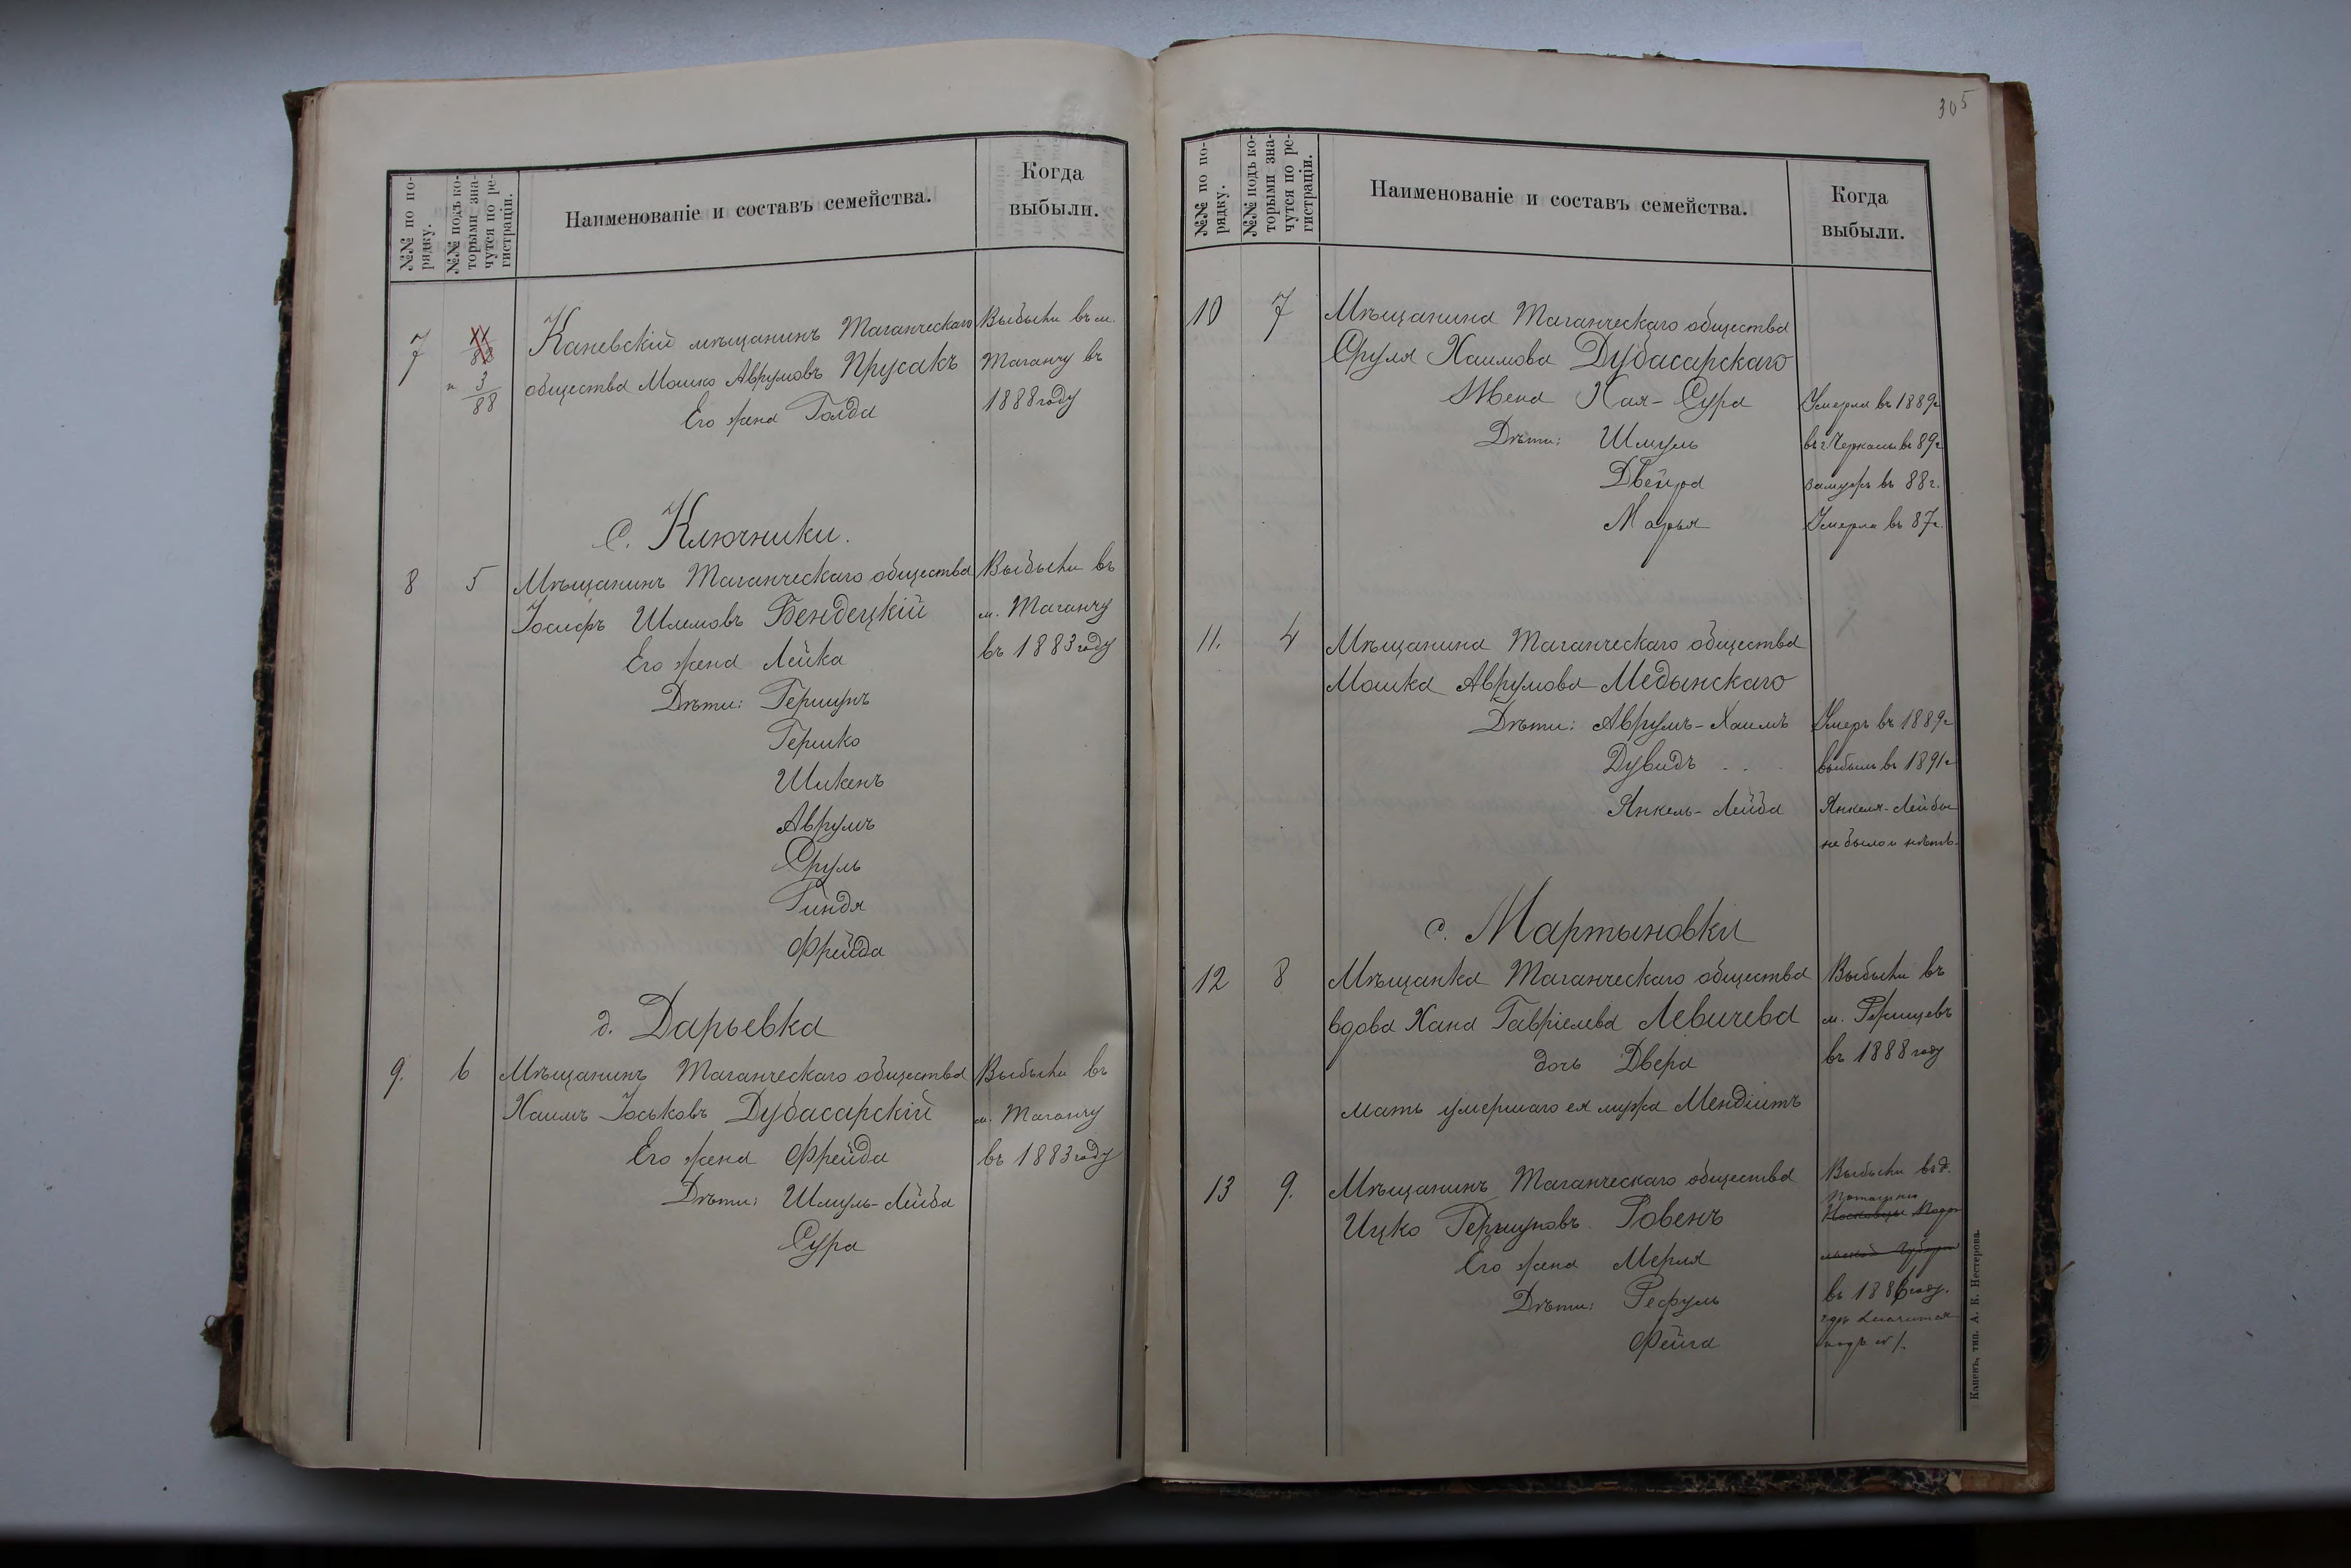 №№ по по-
рядку.
№№ подъ ко-
торыми зна-
чутся по ре-
гистраціи.
Наименованіе и составъ семейства.
Когда
выбыли.
7
88
Каневскій мѣщанинъ Таганческаго
Выбыли въ м.
3
88
общества Мошко Аврумовъ Прусакъ
Таганчу въ
Его жена Голда
1888 году
С. Ключники.
8 5 Мѣщанинъ Таганческаго общества
Выбыли въ
Іосифъ Шлемовъ Бендецкій
м. Таганчу
Его жена Лейка
въ 1883 году
Дѣти: Гершунъ
Гершко
Шикенъ
Аврумъ
Сруль
Гиндя
Фрейда
д. Дарьевка
9. 6 Мѣщанинъ Таганческаго общества
Выбыли въ
Хаимъ Іоськовъ Дубасарскій
м. Таганчу
Его жена Фрейда
въ 1883 году
Дѣти: Шмуль-Лейба
Сура
305
№№ по по-
рядку.
№№ подъ ко-
торыми зна-
чутся по ре-
гистраціи.
Наименованіе и составъ семейства.
Когда
выбыли.
10 7 Мѣщанина Таганческаго общества
Сруля Хаимова Дубасарскаго
Жена Хая-Сура
Умерла въ 1889г
Дѣти: Шмуль
въ г Черкасы въ 89г
Двейра
Замужъ въ 88г.
Марья
Умерла въ 87г.
11. 4 Мѣщанина Таганческаго общества
Мошка Аврумова Медынскаго
Дѣти: Аврумъ-Хаимъ
Умеръ въ 1889г
Дувидъ
выбылъ въ 1891г
Янкель-Лейба
Янкеля-Лейбы
не было и нѣтъ.
с. Мартыновки
12 8 Мѣщанка Таганческаго общества
Выбыли въ
вдова Хана Гавріелева Левичева
м.
дочь Двера
въ 1888 году
мать умершаго ея мужа
13 9. Мѣщанинъ Таганческаго общества
Выбыли въ д.
Ицко Гершуновъ Ровенъ
Его жена Мерля
Дѣти:
въ 1886 году.
Фейга
подъ № 1.
Каневъ, тип. А. К. Нестерова.